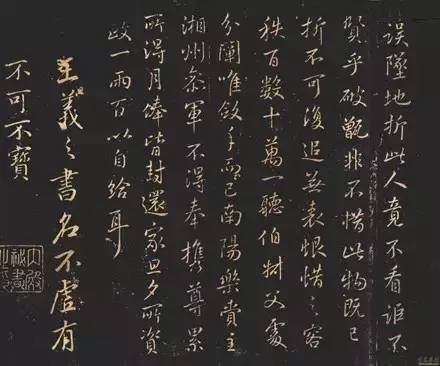 誤墜地折此人竟不看詎不
賢乎破甑非不惜此物既已
折不可復追無表恨惜之容
秩百數十萬一聽伯樹父處
分闡唯斂手而已南陽樂賞主
湘州参軍不得奉携尊累
所得月俸皆封還家旦夕所資
政一兩百以自給耳
王羲之書名不虛有
不可不寶